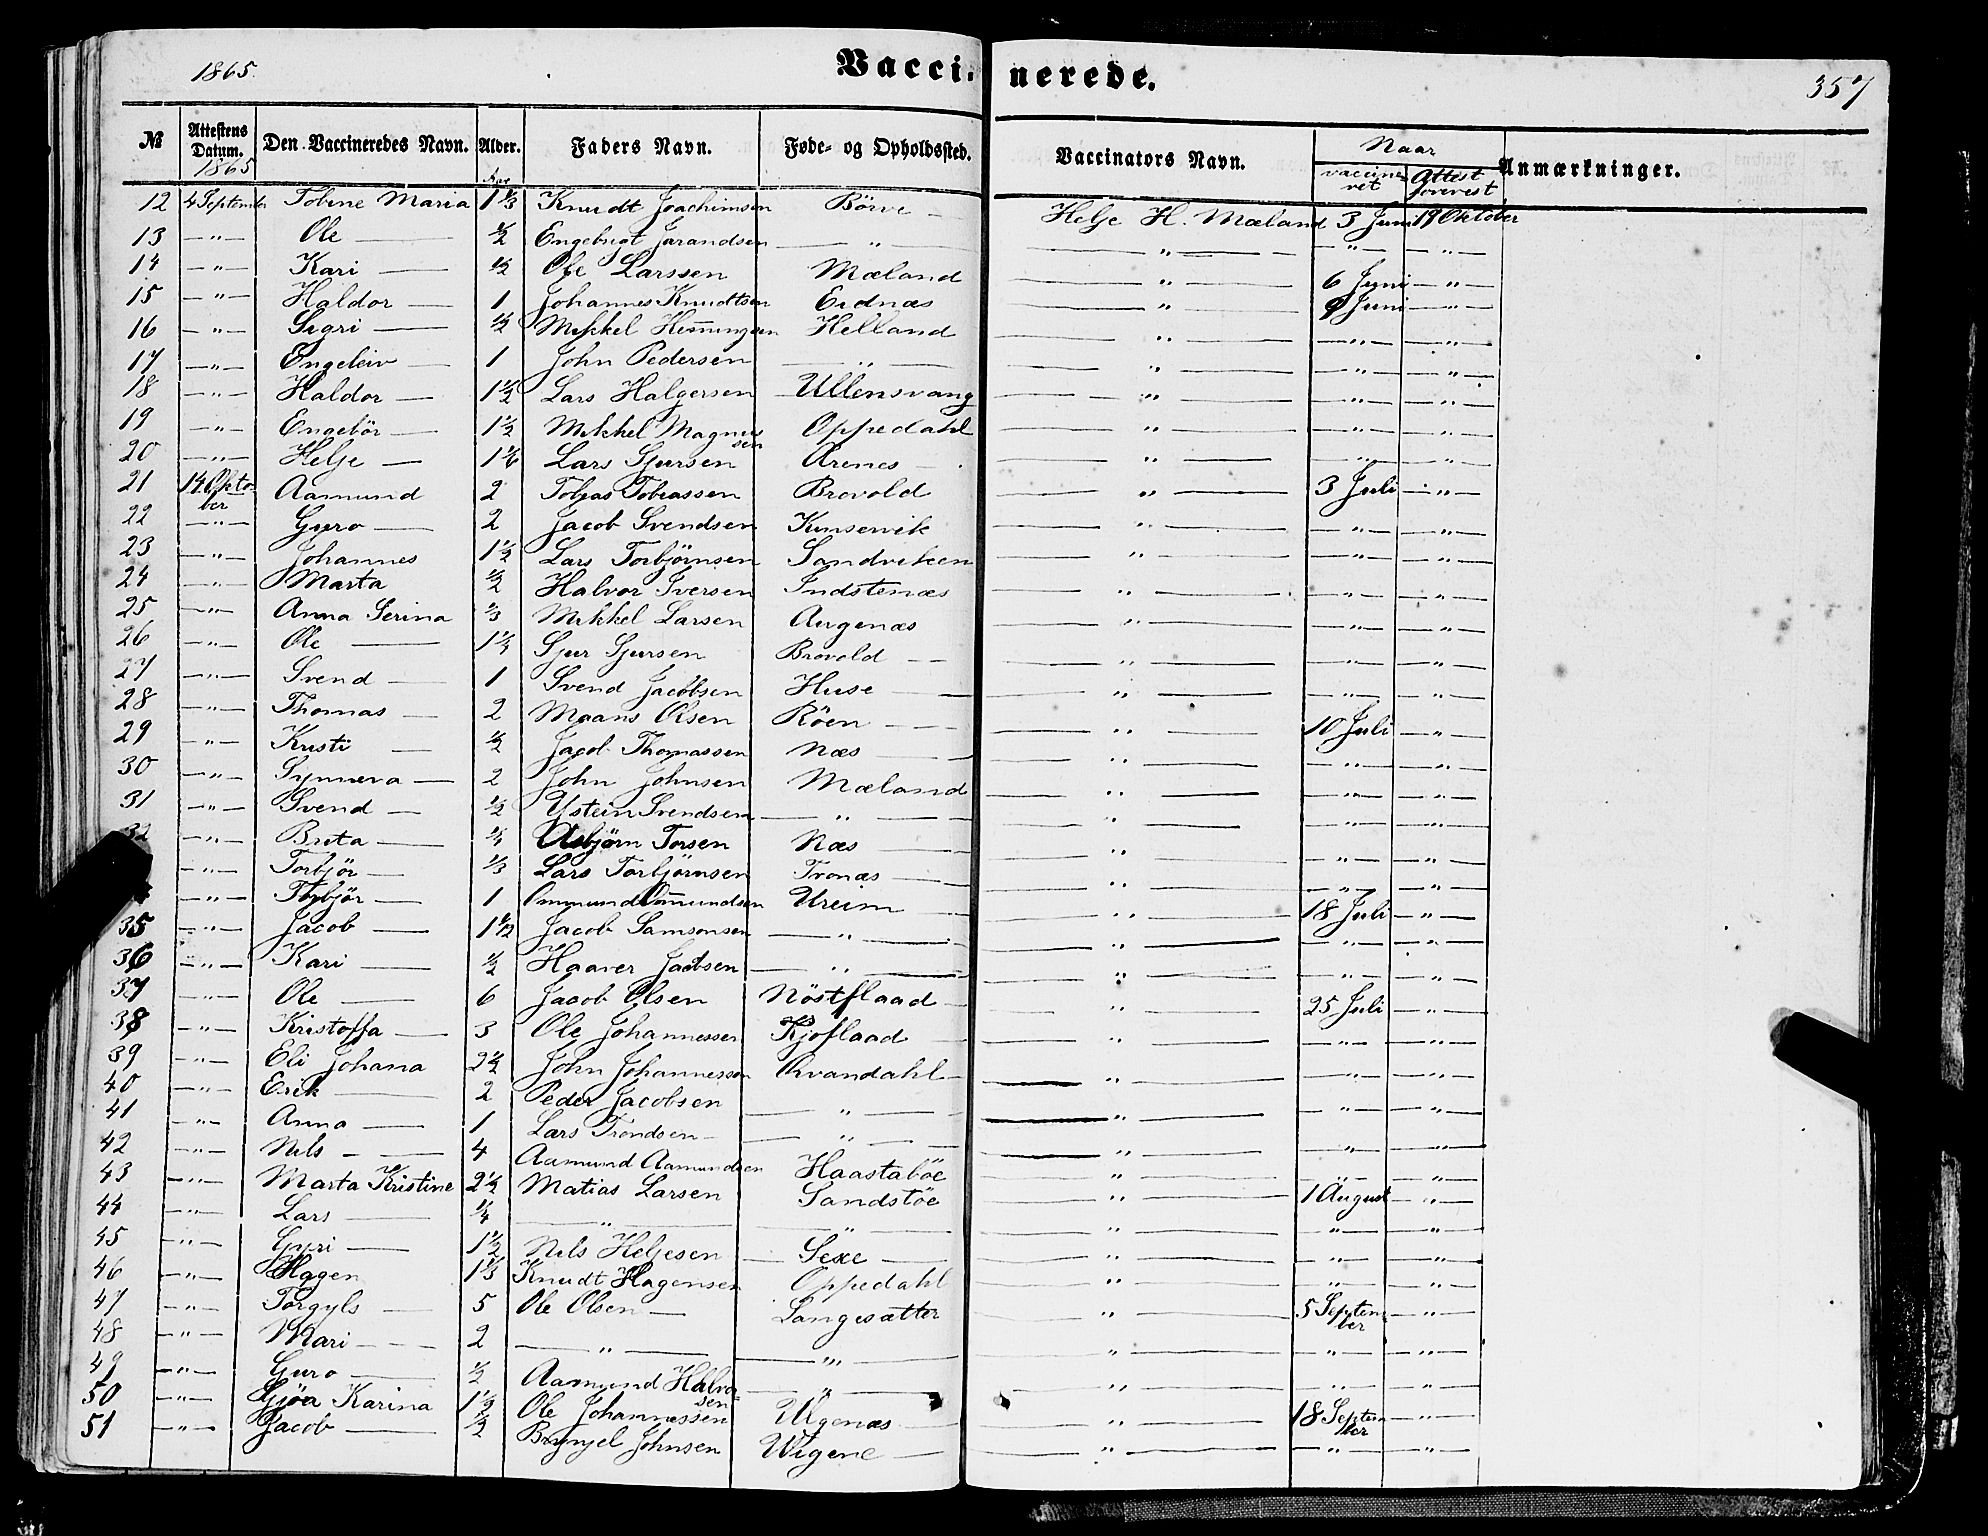 1865.
Vaccinerede.
357
№ Attestens Datum. 1865 Den Vaccineredes Navn. Alder. Aar Faders Navn. Føde- og Opholdssted. Vaccinators Navn. Naar vaccineret Attest forevist Anmærkninger.
12 4 September Tobine Maria 1 1/3 Knudt Joachimsen Börve Helje H. Mæland 3 Juni 19 Oktober
13 —"— Ole 1/2 Engebrigt Jarandsen —"— —"— —"— —"—
14 —"— Kari 1/2 Ole Larssen Mæland —"— 6 Juni —"—
15 —"— Haldor 1 Johannes Knudtsen Eidnæs —"— 9 Juni —"—
16 —"— Sigri 1/2 Mikkel Hemingsen Helland —"— —"— —"—
17 —"— Engeleiv 1 John Pedersen —"— —"— —"— —"—
18 —"— Haldor 1 1/2 Lars Halgersen Ullensvang —"— —"— —"—
19 —"— Engebör 1 1/2 Mikkel Magnussen Oppedahl —"— —"— —"—
20 —"— Helje 1 1/6 Lars Sjursen Arenes —"— —"— —"—
21 14 Oktober Aamund 2 Tobias Tobiassen Brovold —"— 3 Juli —"—
22 —"— Guro 2 Jacob Svendsen Kinservik —"— —"— —"—
23 —"— Johannes 1 1/2 Lars Torbjörnsen Sandviken —"— —"— —"—
24 —"— Marta 1/2 Halvor Iversen Indstenæs —"— —"— —"—
25 —"— Anna Serina 1/3 Mikkel Larsen Augenæs —"— —"— —"—
26 —"— Ole 1 1/4 Sjur Sjursen Brovold —"— —"— —"—
27 —"— Svend 1 Svend Jacobsen Huse —"— —"— —"—
28 —"— Thomas 2 Maans Olsen Röen —"— 10 Juli —"—
29 —"— Kristi 1/2 Jacob Thomassen Næs —"— —"— —"—
30 —"— Synneva 2 John Johnsen Mæland —"— —"— —"—
31 —"— Svend 1/2 Ystein Svendsen —"— —"— —"— —"—
32 —"— Brita 1/4 Asbjörn Torsen Næs —"— —"— —"—
—"— Torbjör 1/3 Lars Torbjörnsen Tronæs —"— —"— —"—
—"— Torbjör 1 Ommund Ommundsen Ureim —"— 18 Juli —"—
35 —"— Jacob 1 1/2 Jacob Samsonsen —"— —"— —"— —"—
36 —"— Kari 1/2 Haaver Jacobsen —"— —"— —"— —"—
37 —"— Ole 6 Jacob Olsen Nöstflaad —"— 25 Juli —"—
38 —"— Kristoffa 3 Ole Johannessen Kjoflaad —"— —"— —"—
39 —"— Eli Johana 2 1/2 John Johannessen Qvandahl —"— —"— —"—
40 —"— Erik 2 Peder Jacobsen —"— —"— —"— —"—
41 —"— Anna 1 Lars Trondsen —"— —"— —"— —"—
42 —"— Nils 4 Aamund Aamundsen Haastaböe —"— —"— —"—
43 —"— Marta Kristine 2 1/2 Matias Larsen Sandstöe —"— 1 August —"—
44 —"— Lars 1/4 —"— —"— —"— —"— —"—
45 —"— Gyri 1 1/2 Nils Heljesen Sexe —"— —"— —"—
46 —"— Hagen 1 1/3 Knudt Hagensen Oppedahl —"— —"— —"—
47 —"— Torgyls 5 Ole Olsen Langesætter —"— 5 September —"—
48 —"— Mari 2 —"— —"— —"— —"— —"—
49 —"— Guro 1/2 Aamund Halvorsen —"— —"— —"— —"—
50 —"— Gjöa Karina 1 1/2 Ole Johannessen Ulgenæs —"— 18 September —"—
51 —"— Jacob 1/2 Brynjel Johnsen Wigene —"— —"— —"—